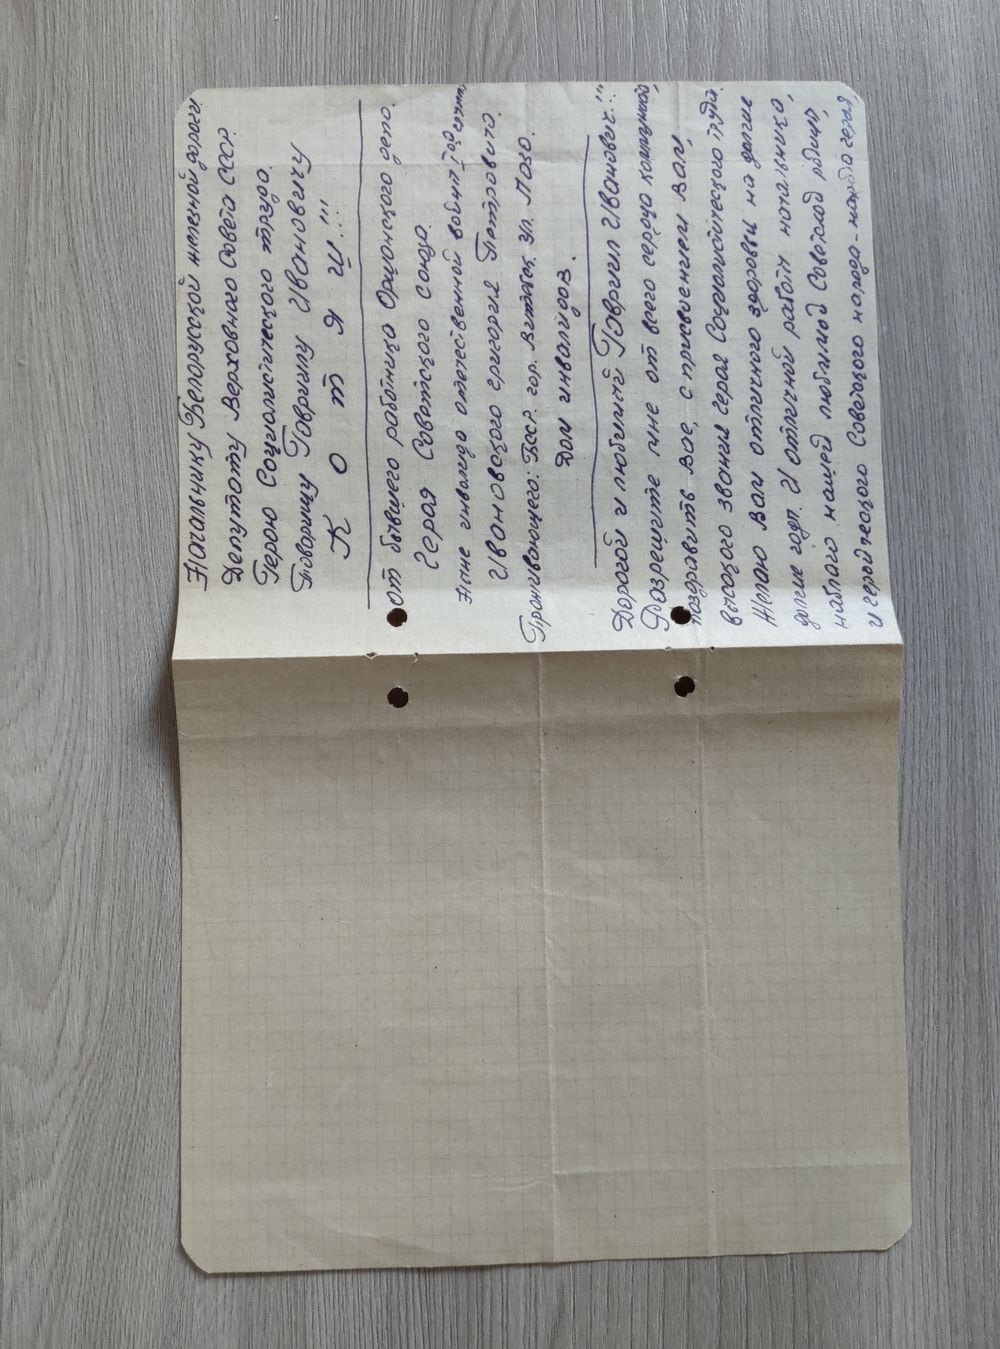 Начальнику Белорусской железной дороги
Депутату Верховного Совета СССР.
Герою Социалистического труда.
Товарищу Гаврилу Ивановичу
К о т я й!!!
от бывшего работника Оршанского депо.
Героя Советского Союза.
Ныне инвалида отечественной войны,
Ивановского Григория Петровича.
Проживающего: Бсср. гор. Витебск ул. Лазо.
Дом инвалидов.
Дорогой и любимый Гаврил Иванович!!!
Разрешите мне от всего сердца коммуниста,
поздравить вас, с присвоением Вам,
высокого звония героя Социалистического труда.
Желаю Вам отличного здоровья на долгие
долгие годы. И отличной работы начальника,
на благо нашей любимой Советской родины,
и геройского Советского народа-народа героя